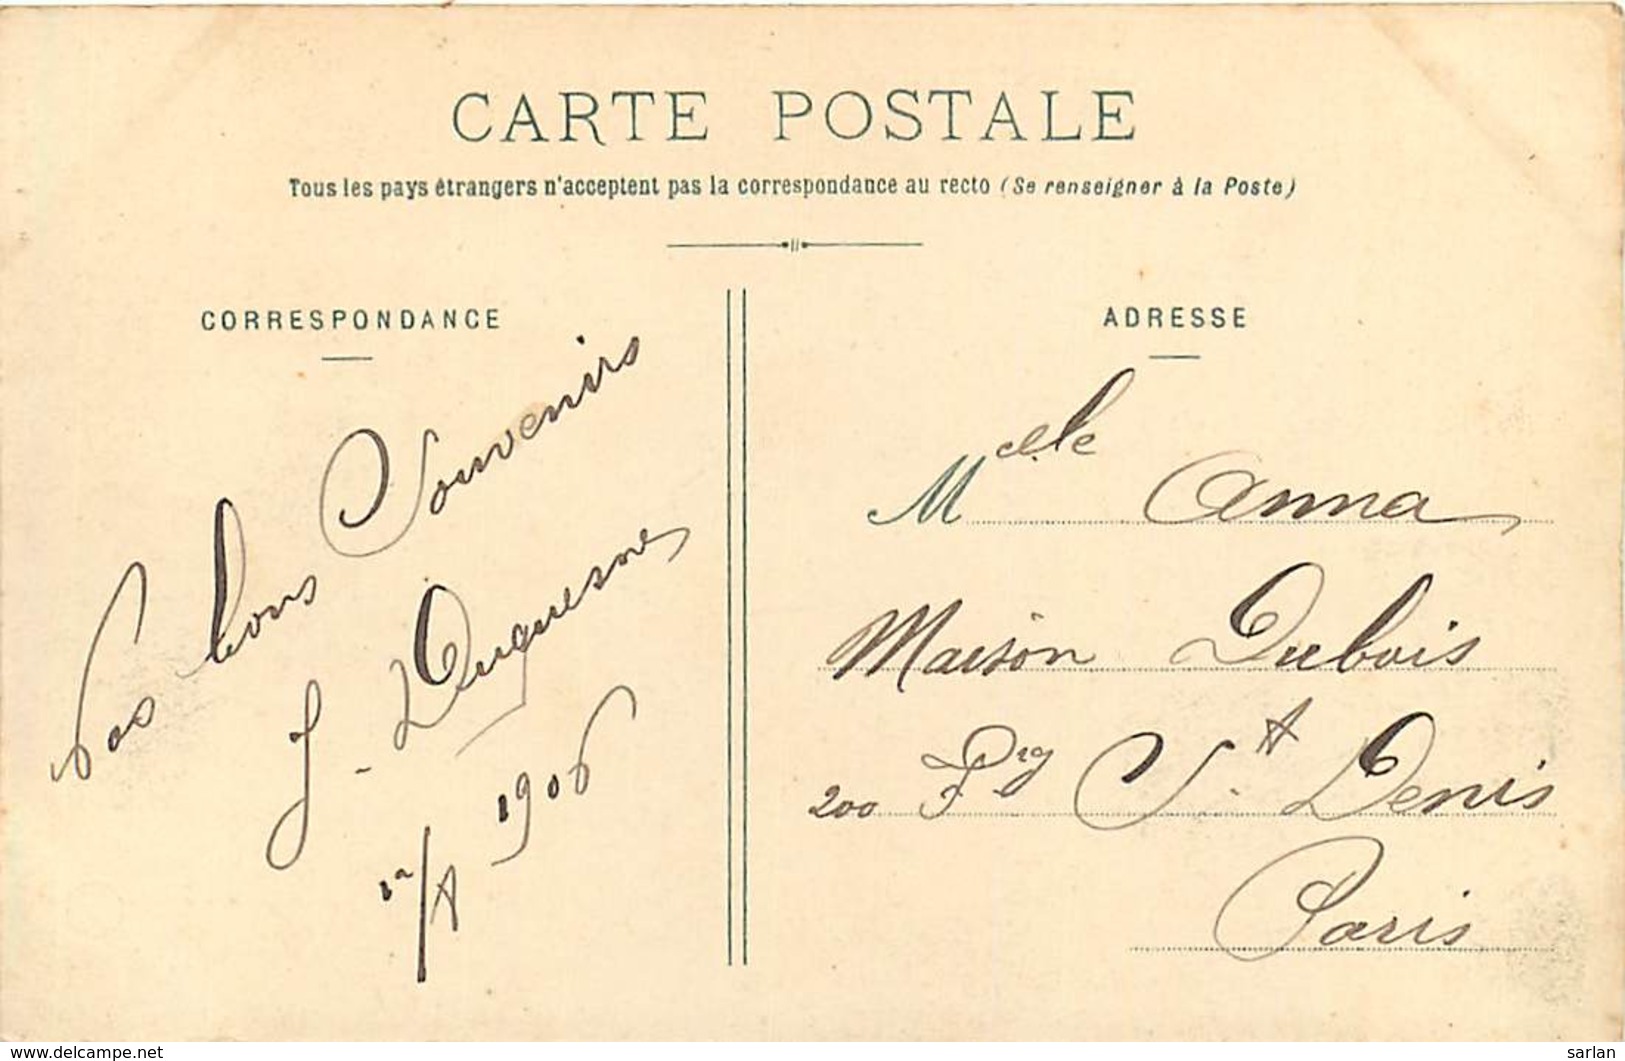 CARTE POSTALE
Tous les pays étrangers n'acceptent pas la correspondance au recto (Se renseigner à la Poste)
CORRESPONDANCE
bons Souvenirs
J. Duquesne
1906
ADRESSE
Melle Anna
Maison Dubois
200 Fbg St. Denis
Paris
www.delcampe.net
sarlan